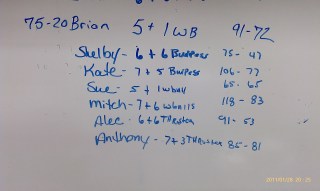 75-20 Brian 5+1 WB 91-72
Shelby- 6+6 Burpees 75-47
Kate- 7+5 Burpees 106-77
Sue- 5+1 wball 65-65
Mitch- 7+6 wballs 118-83
Alec- 6+6 Thruster 91-53
Anthony- 7+3 Thruster 85-81